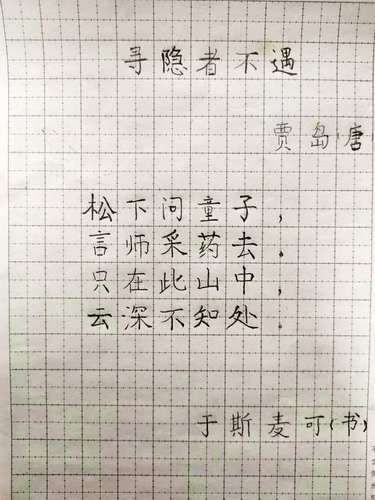 寻隐者不遇
贾岛(唐
松下问童子，
言师采药去。
只在此山中，
云深不知处。
于斯麦可(书)